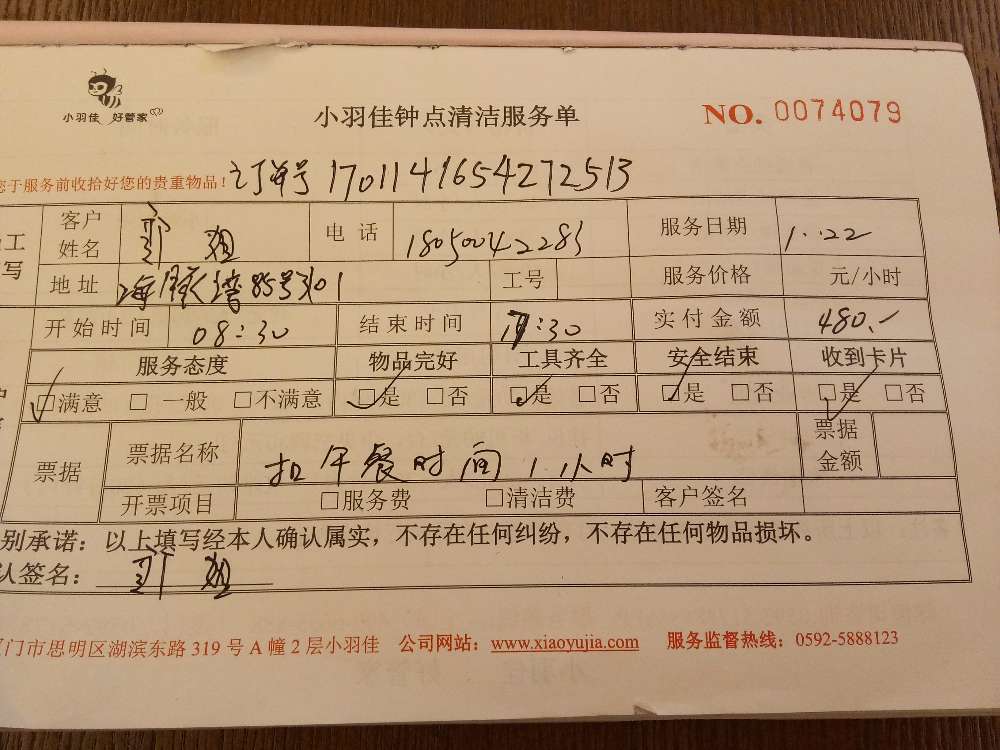 小羽佳 好管家
小羽佳钟点清洁服务单
NO. 0074079
您于服务前收拾好您的贵重物品！ 订单号 1701141654272513
工 客户 电话 18050042283 服务日期 1.22
写 姓名 姐
地址 85号301 工号 服务价格 元/小时
开始时间 08:30 结束时间 17:30 实付金额 480.-
服务态度 物品完好 工具齐全 安全结束 收到卡片
☑满意 □ 一般 □不满意 ☑是 □否 ☑是 □否 ☑是 □否 ☑是 □否
票据 票据名称 扣午餐时间1小时 票据金额
开票项目 □服务费 □清洁费 客户签名
别承诺：以上填写经本人确认属实，不存在任何纠纷，不存在任何物品损坏。
认签名： 姐
门市思明区湖滨东路 319 号 A 幢 2 层小羽佳 公司网站：www.xiaoyujia.com 服务监督热线：0592-5888123